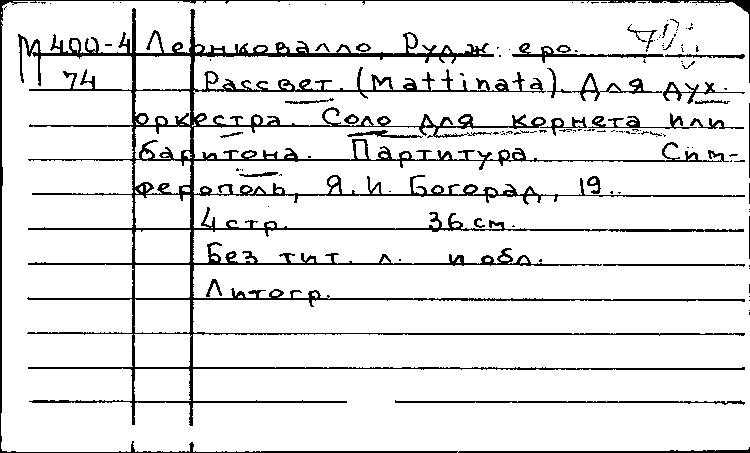 М 400-4 Леонковалло, Руджеро.
74 Рассвет. (Mattinata). Для дух.
оркестра. Соло для корнета или
баритона. Партитура. Сим-
ферополь, Я.И. Богорад, 19..
4 стр. 36 см.
Без тит. л. и обл.
Литогр.